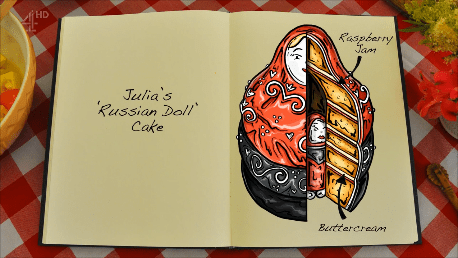 4HD
Julia's
'Russian Doll'
Cake
Raspberry
Jam
Buttercream